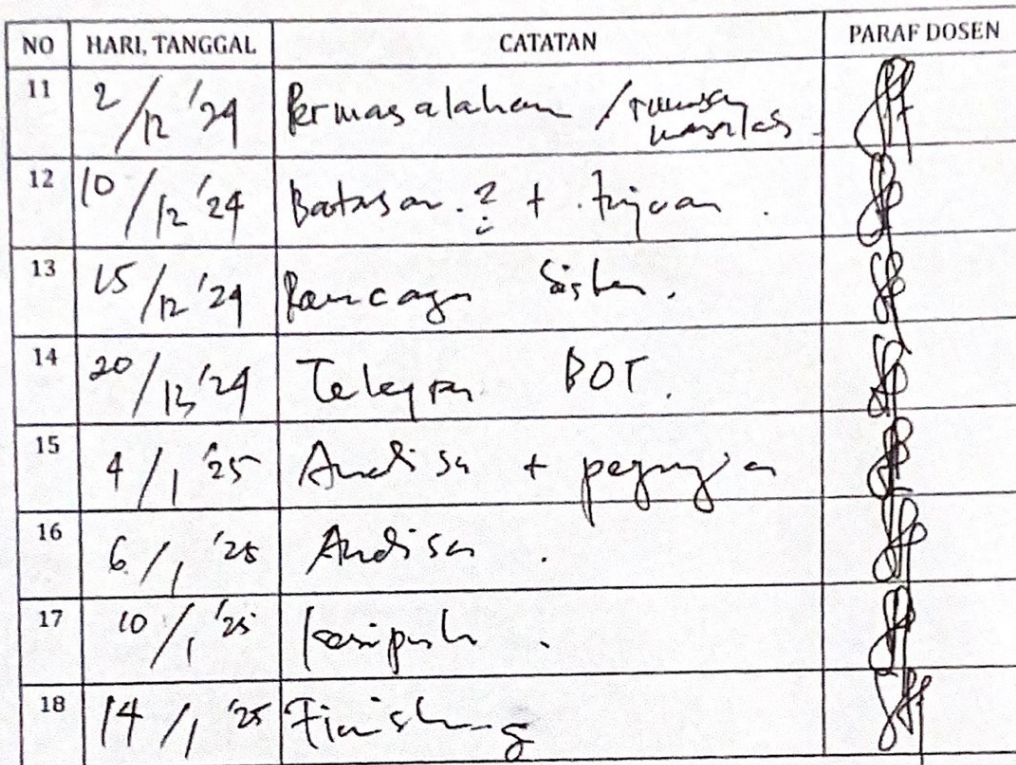 NO HARI, TANGGAL CATATAN PARAF DOSEN
11 2/12 '24 Permasalahan / rumusan masalah
12 10/12 '24 Batasan ? + tujuan .
13 15/12 '24 Rancagn Sistem .
14 20/12 '24 Telegram BOT .
15 4/1 '25 Analisa + pengujian
16 6/1 '25 Analisa .
17 10/1 '25 Kesimpulan .
18 14/1 '25 Finishing